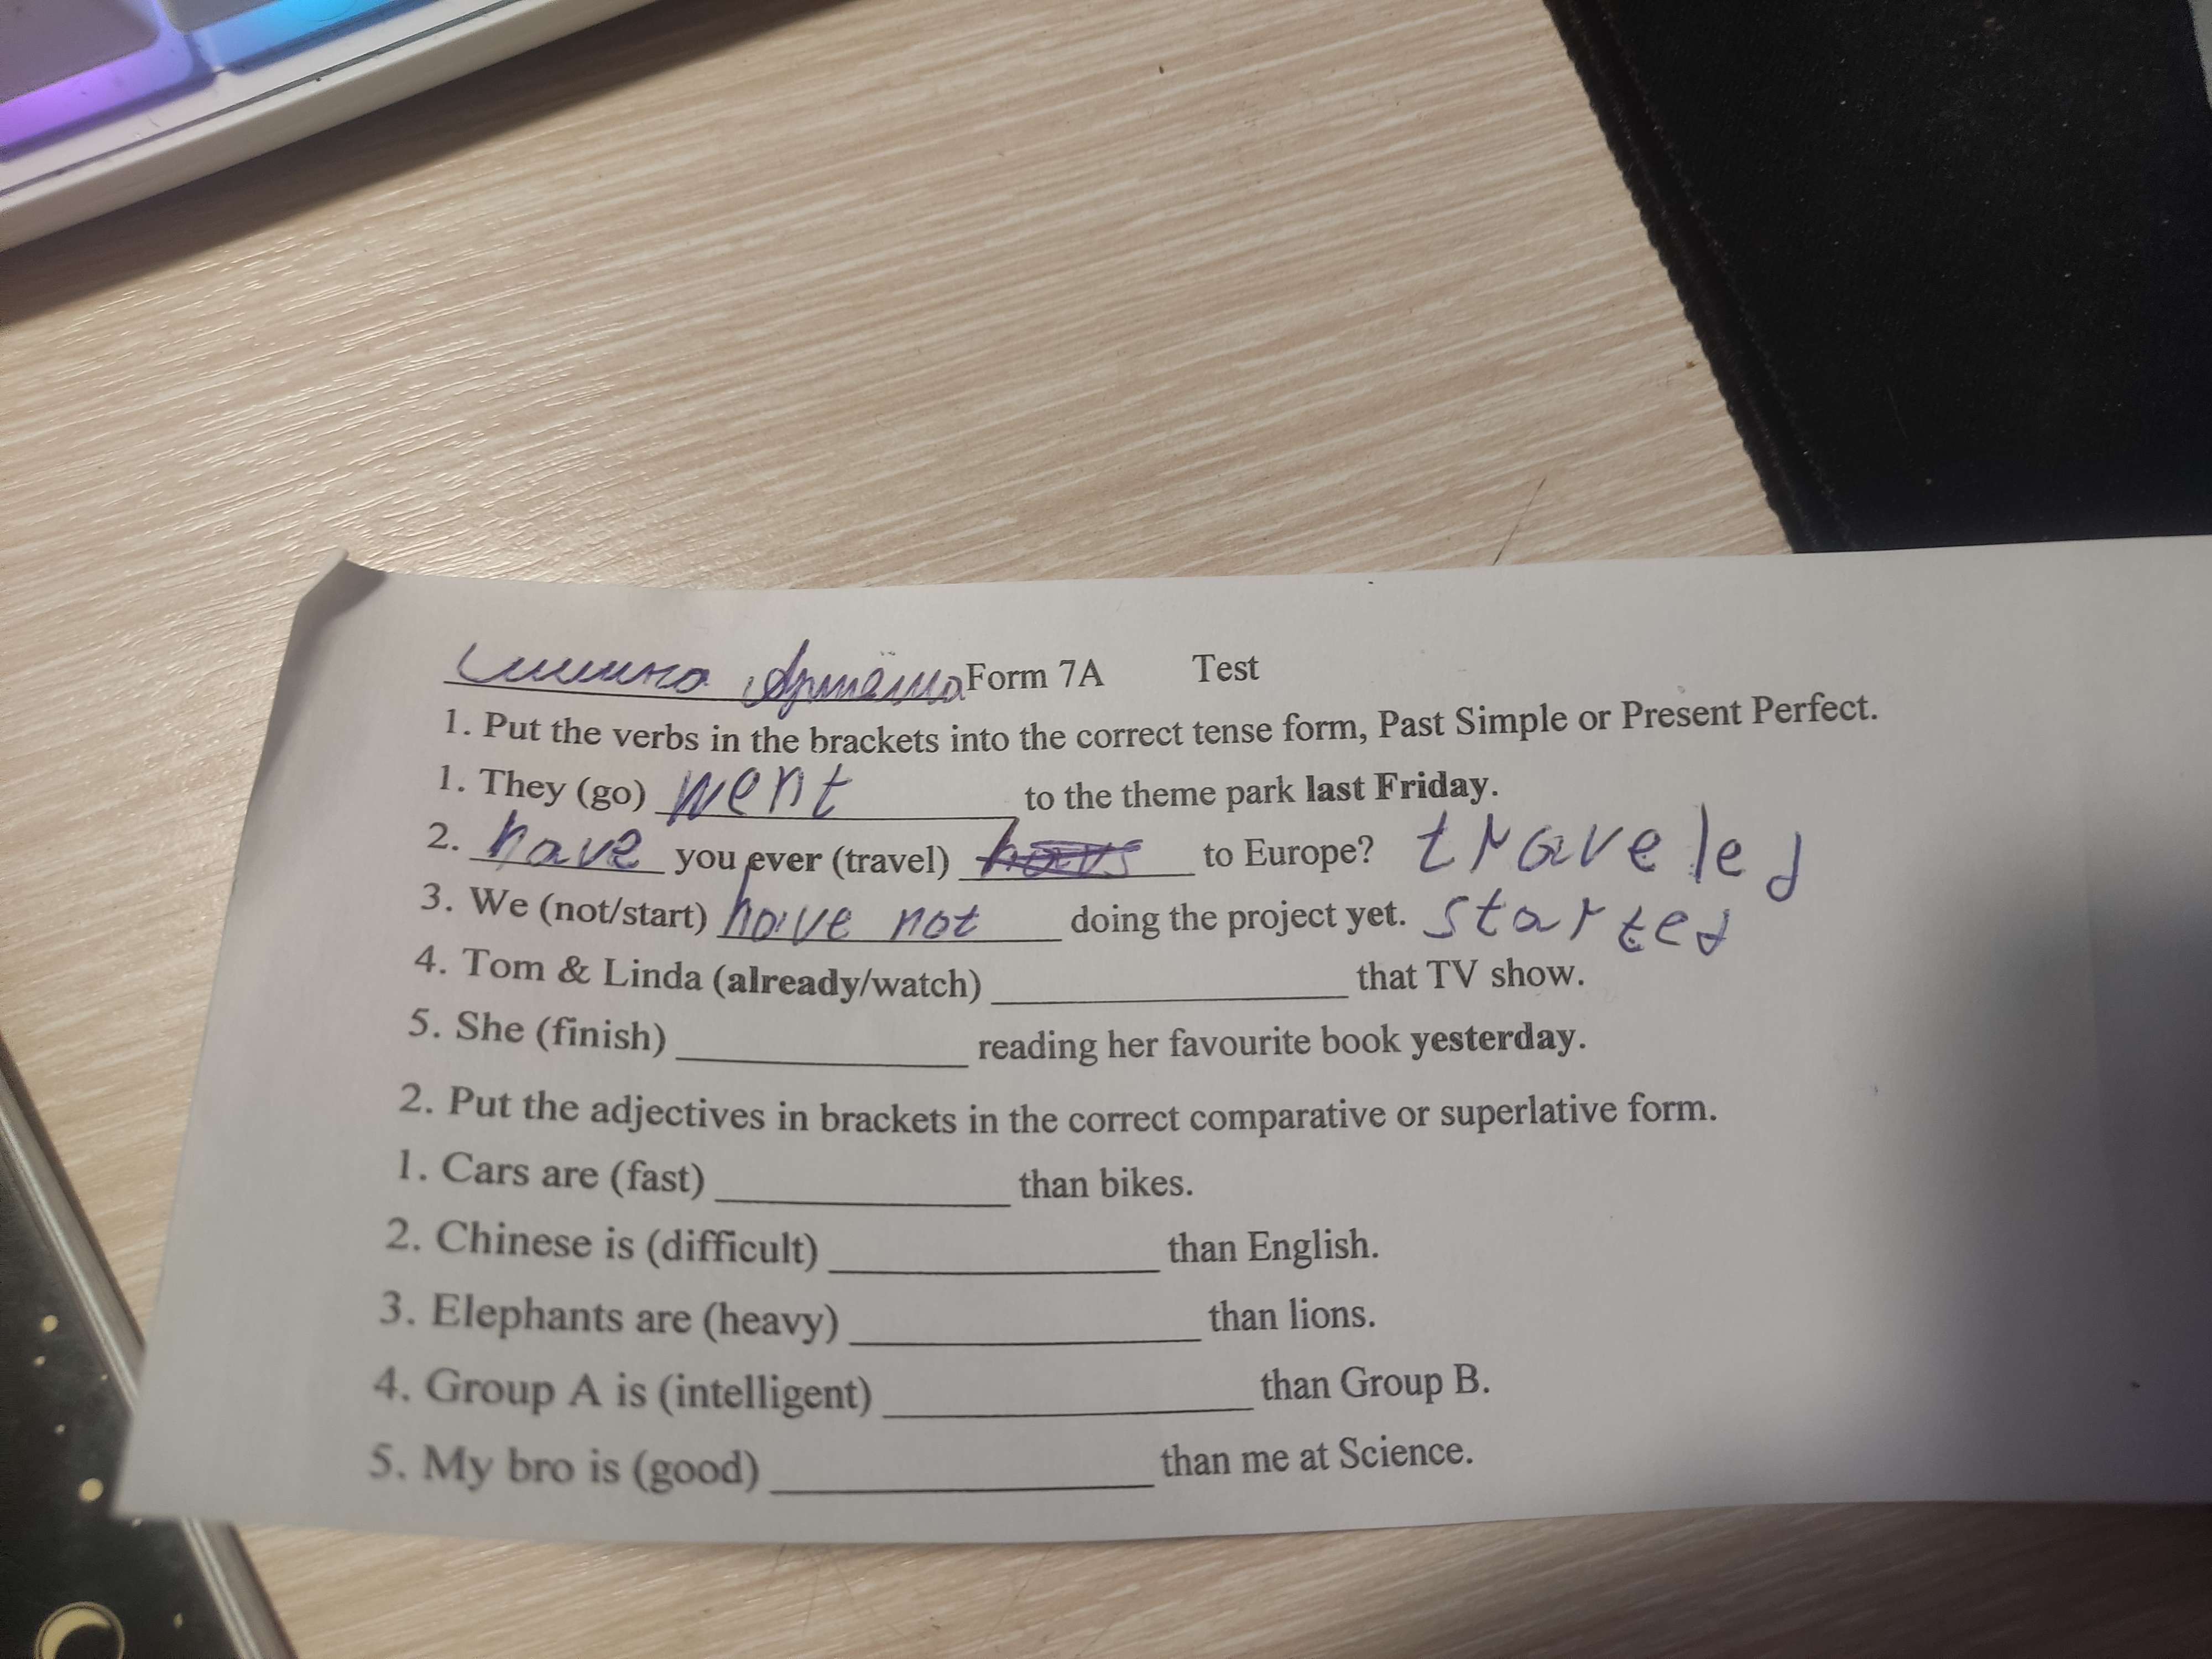 Form 7A Test
1. Put the verbs in the brackets into the correct tense form, Past Simple or Present Perfect.
1. They (go) went to the theme park last Friday.
2. have you ever (travel) ________ to Europe? traveled
3. We (not/start) have not doing the project yet. started
4. Tom & Linda (already/watch) ________ that TV show.
5. She (finish) ________ reading her favourite book yesterday.
2. Put the adjectives in brackets in the correct comparative or superlative form.
1. Cars are (fast) ________ than bikes.
2. Chinese is (difficult) ________ than English.
3. Elephants are (heavy) ________ than lions.
4. Group A is (intelligent) ________ than Group B.
5. My bro is (good) ________ than me at Science.